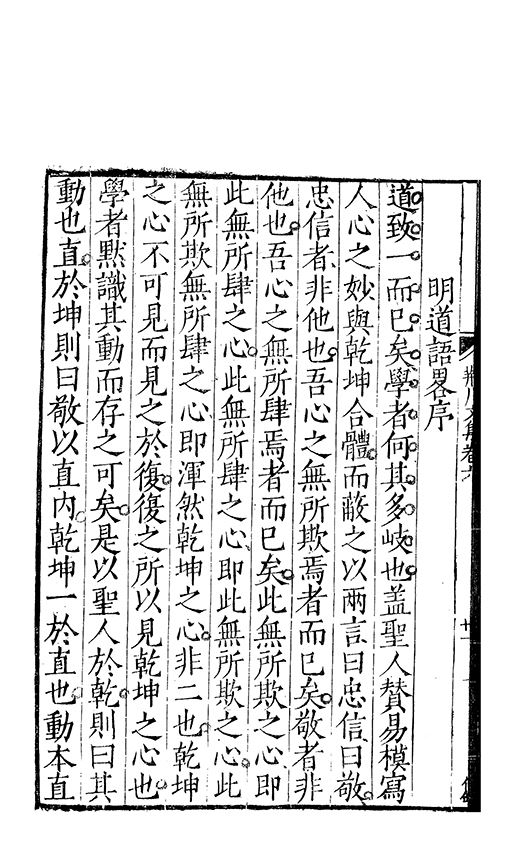 荆川文集卷十
十一
明道語畧序
道致一而已矣學者何其多岐也盖聖人賛易模寫
人心之妙與乾坤合體而蔽之以兩言曰忠信曰敬
忠信者非他也吾心之無所欺焉者而已矣敬者非
他也吾心之無所肆焉者而已矣此無所欺之心即
此無所肆之心此無所肆之心即此無所欺之心此
無所欺無所肆之心即渾然乾坤之心非二也乾坤
之心不可見而見之於復復之所以見乾坤之心也
學者默識其動而存之可矣是以聖人於乾則曰其
動也直於坤則曰敬以直内乾坤一於直也動本直